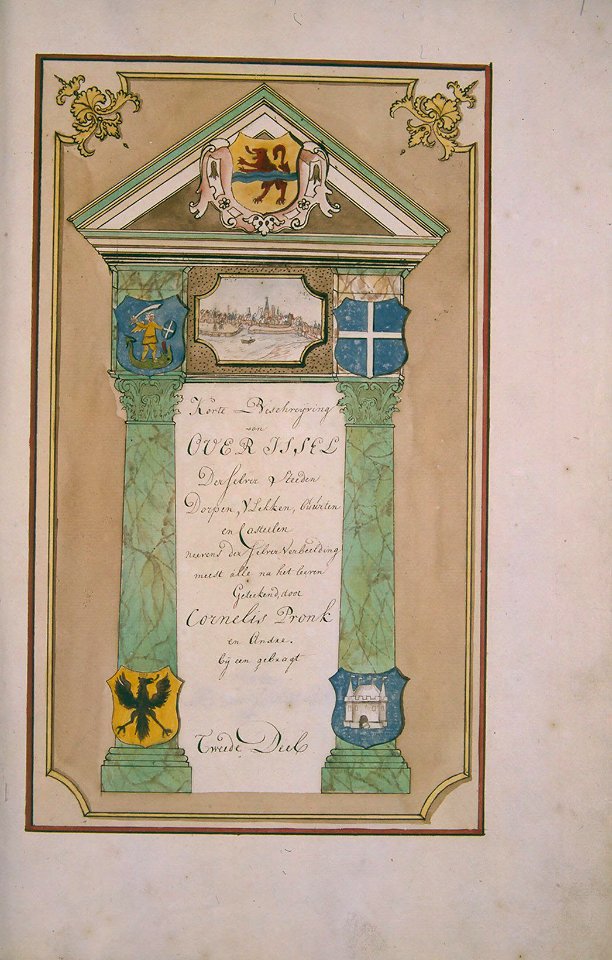 Korte Beschryving
van
OVER ISSEL
Derselver Steeden
Dorpen, Vlekken, buurten
en Casteelen
neevens der selver Verbeelding
meest alle na het leeven
Geteekend, door
Cornelis Pronk
en Andre.
by een gebragt
Tweede Deel